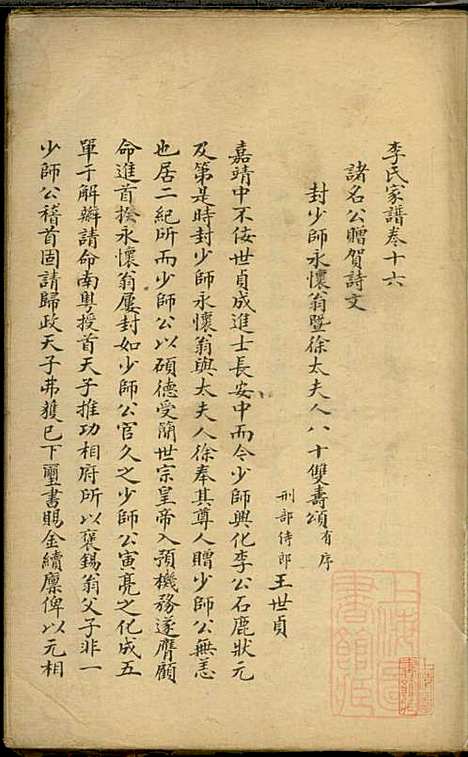 李氏家譜卷十六
諸名公贈賀詩文
封少師永懷翁暨徐太夫人八十雙壽頌有序
刑部侍郎王世貞
嘉靖中不佞世貞成進士長安中而今少師興化李公石鹿狀元
及第是時封少師永懷翁與太夫人徐奉其尊人贈少師公無恙
也居二紀所而少師公以碩德受簡世宗皇帝入預機務遂膺顧
命進首揆永懷翁屢封如少師公官久之少師公寅亮之化成五
單于解辮請命南粵授首天子推功相府所以褒錫翁父子非一
少師公稽首固請歸政天子弗獲已下璽書賜金續廩俾以元相
上海圖
書館藏